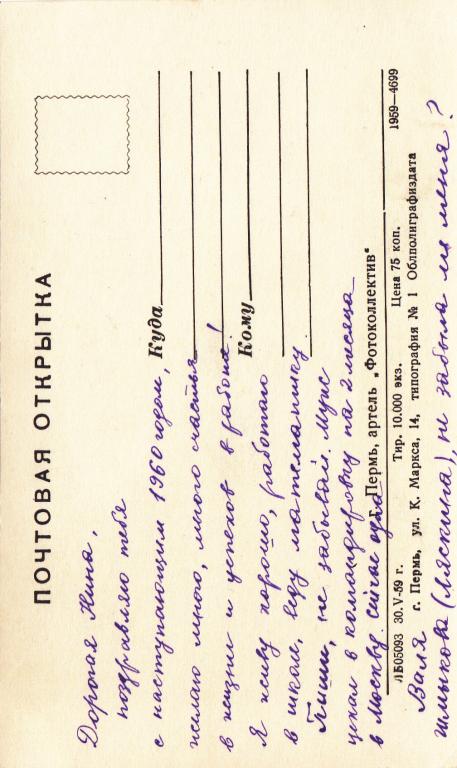 ПОЧТОВАЯ ОТКРЫТКА
Куда
Кому
Дорогая Нина,
поздравляю тебя
с наступающим 1960 годом,
желаю много, много счастья
в жизни и успехов в работе!
Я живу хорошо, работаю
в школе, веду математику.
Пиши, не забывай. Муж
уехал в командировку на 2 месяца
в Москву. сейчас одна
Валя
(Ляскина), не забыла ли меня?
г. Пермь, артель „Фотоколлектив"
ЛБ05093 30.V-59 г. Тир. 10.000 экз. Цена 75 коп. 1959—4699
г. Пермь, ул. К. Маркса, 14, типография № 1 Облполиграфиздата